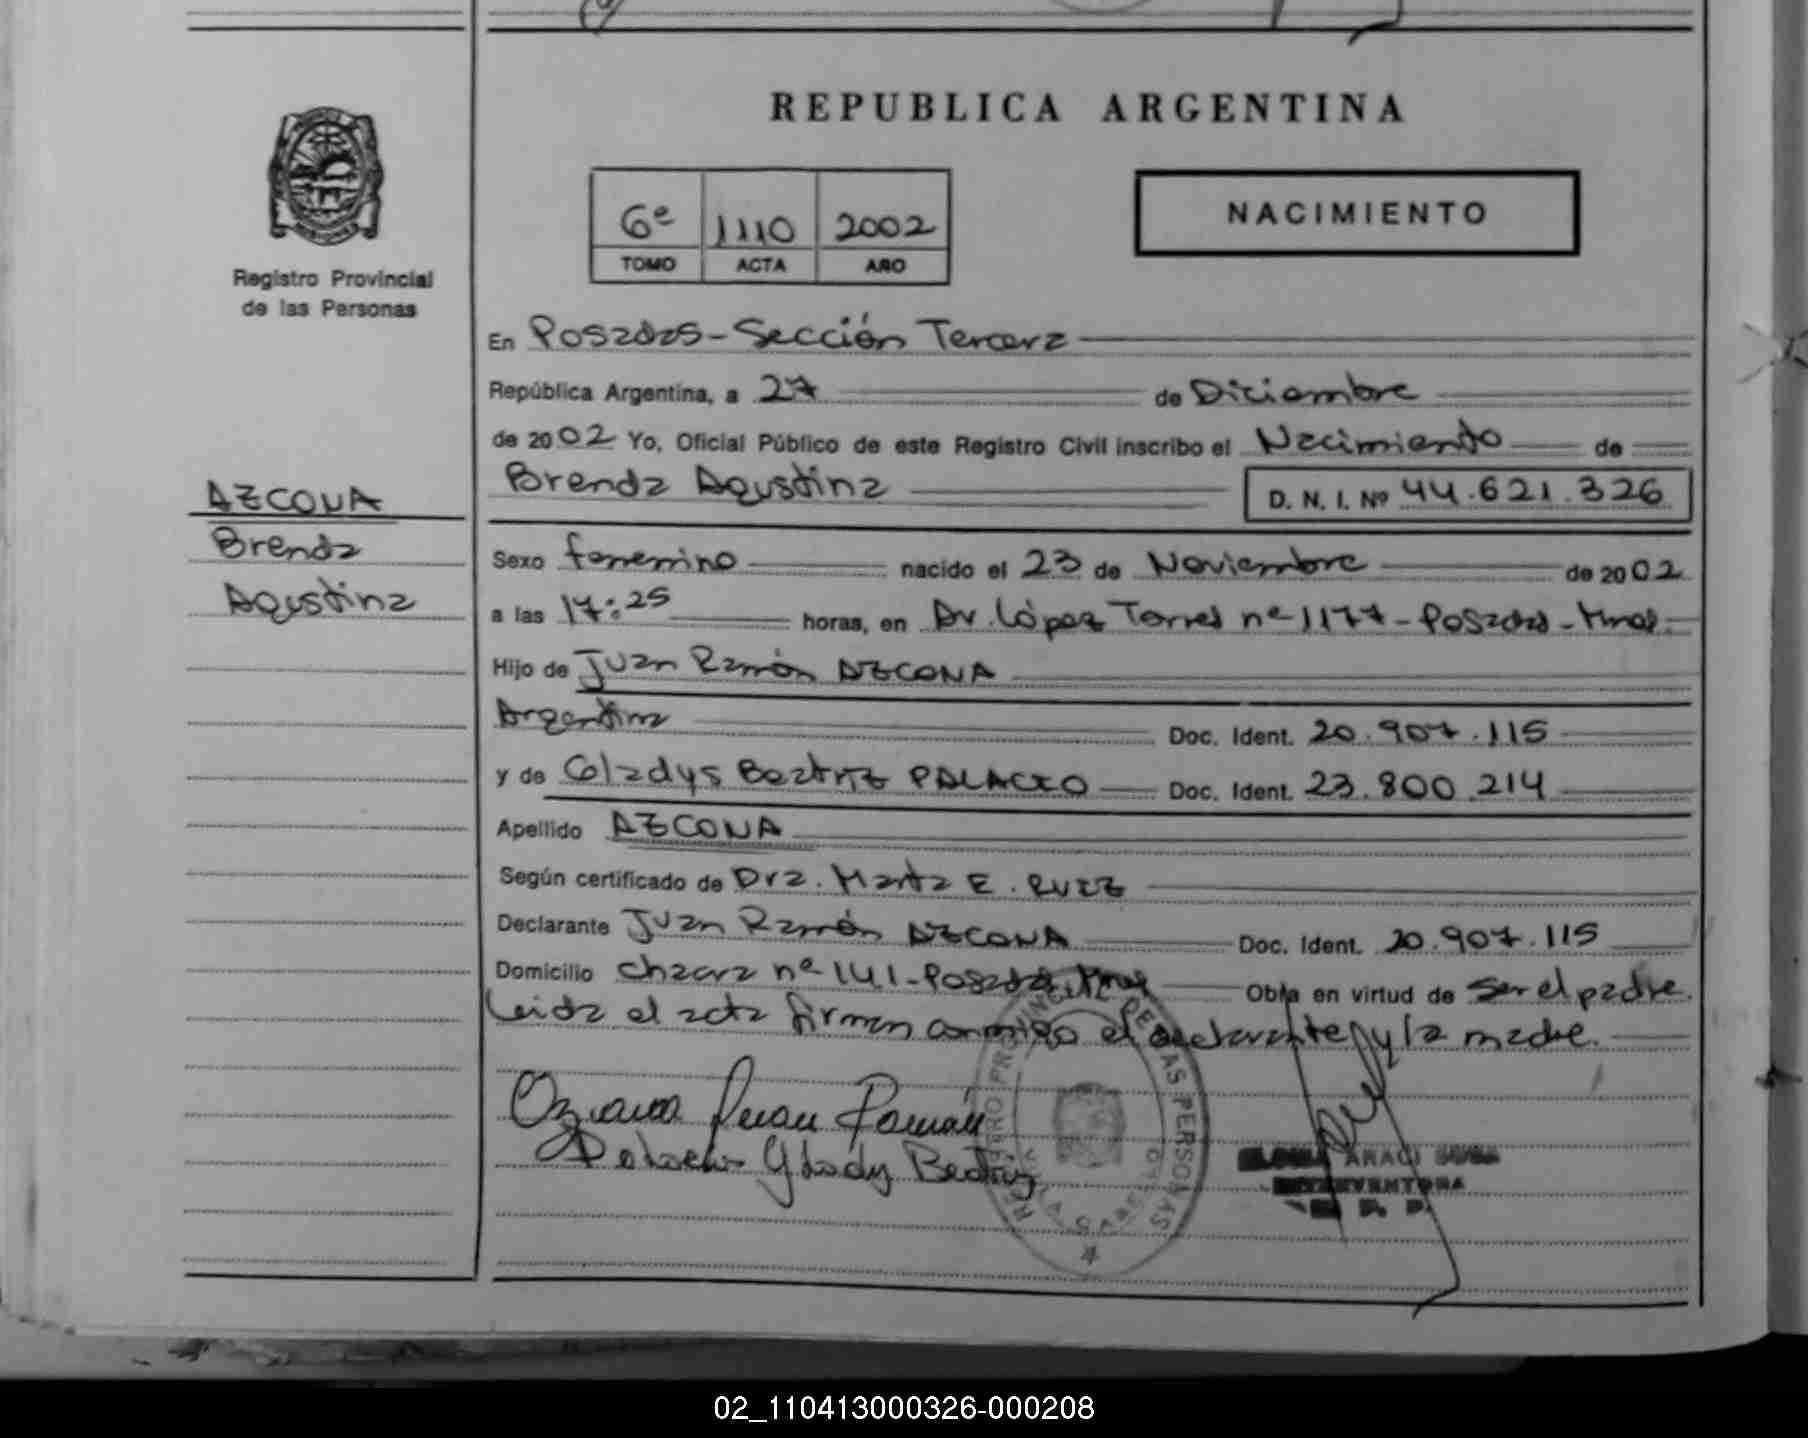 REPUBLICA ARGENTINA
6º 1110 2002
TOMO ACTA AÑO
NACIMIENTO
Registro Provincial
de las Personas
AZCONA
Brenda
Agustina
En Posadas - Sección Tercera
República Argentina, a 27 de Diciembre
de 2002 Yo, Oficial Público de este Registro Civil inscribo el Nacimiento de
Brenda Agustina D. N. I. Nº 44.621.326
Sexo femenino nacido el 23 de Noviembre de 2002
a las 17:25 horas, en Av. López Torres nº 1177 - Posadas - Mnes.
Hijo de Juan Ramón AZCONA
Argentina Doc. Ident. 20.907.115
y de Gladys Beatriz PALACIO Doc. Ident. 23.800.214
Apellido AZCONA
Según certificado de Dra. Marta E. RUIZ
Declarante Juan Ramón AZCONA Doc. Ident. 20.907.115
Domicilio chacra nº 141 - Posadas - Mnes Obra en virtud de ser el padre.
Leida el acta firman conmigo el declarante y la madre.
Juan Ramón
Beatriz
ARACI
INTERVENTORA
R. P. P.
02_110413000326-000208